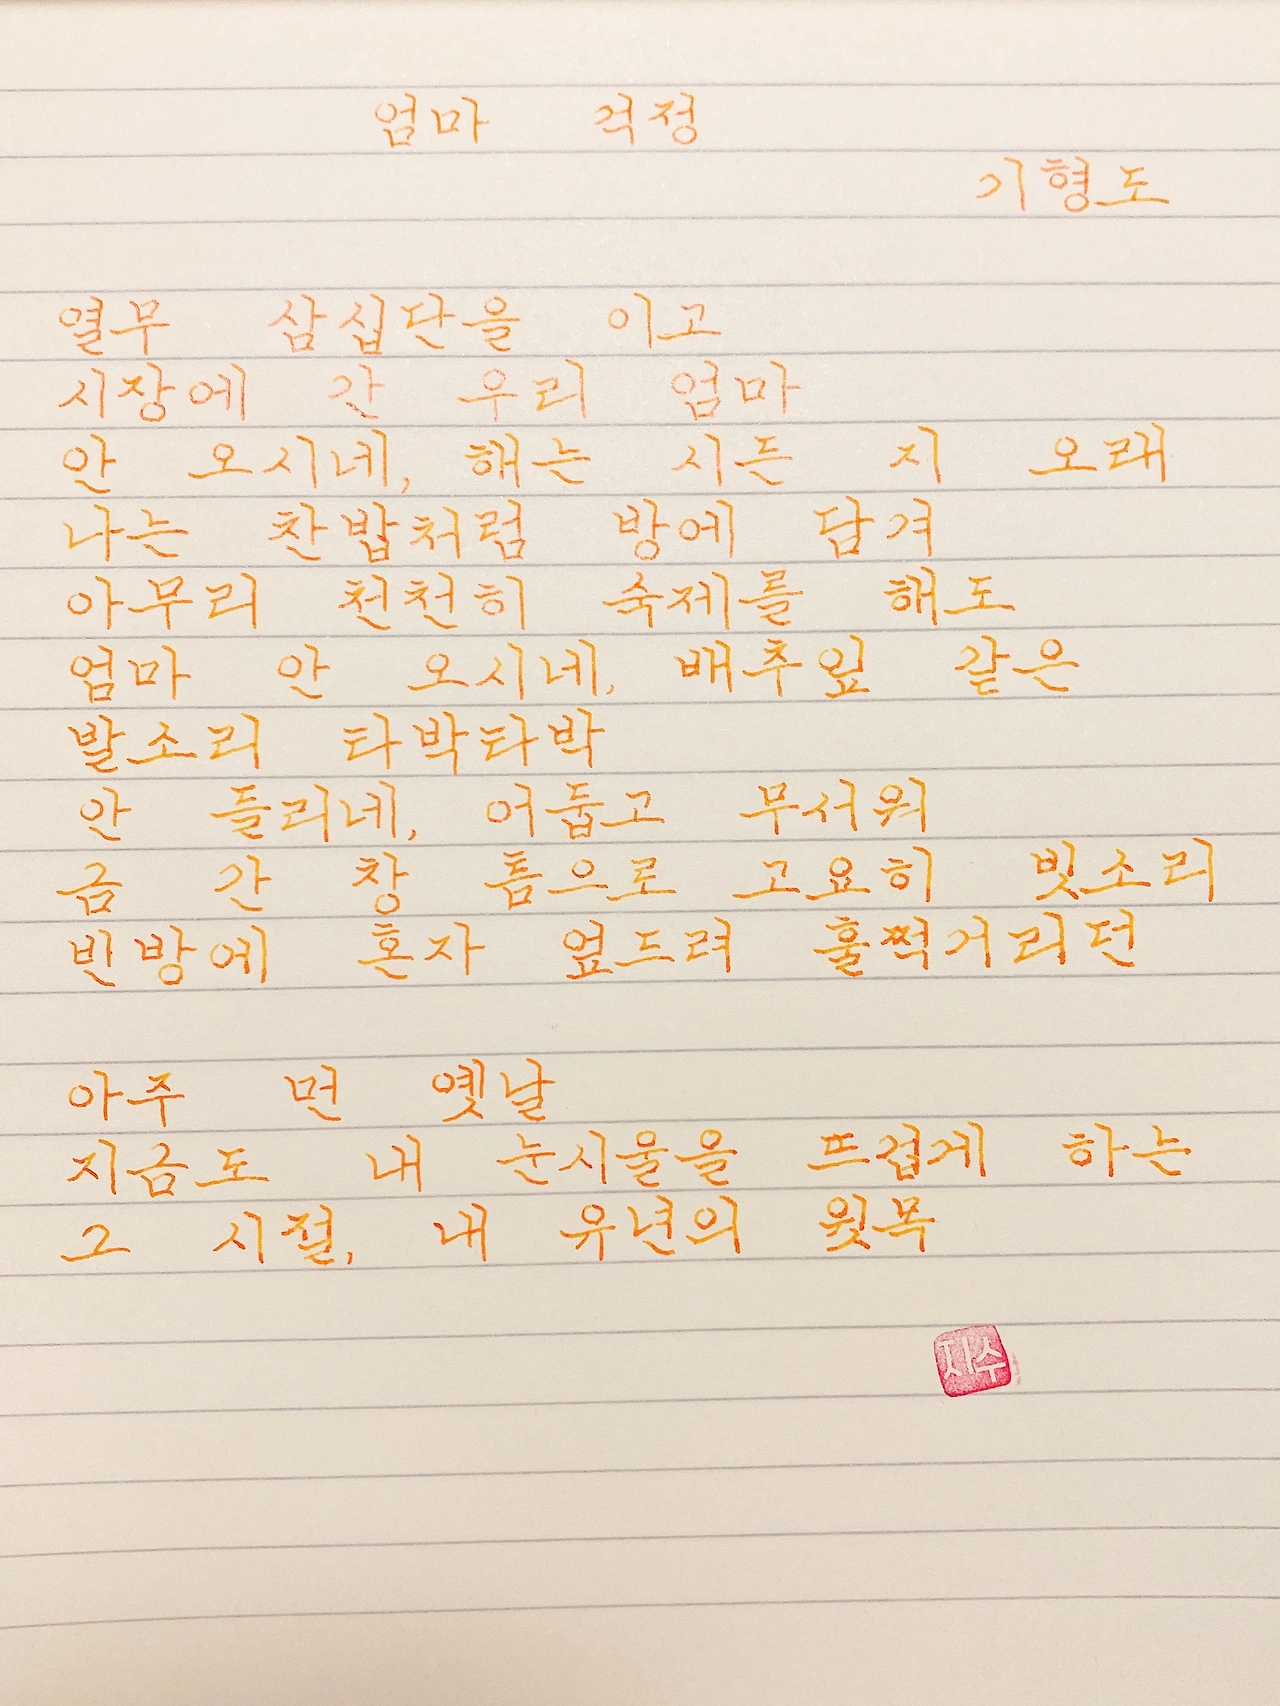 엄마 걱정
기형도
열무 삼십단을 이고
시장에 간 우리 엄마
안 오시네, 해는 시든 지 오래
나는 찬밥처럼 방에 담겨
아무리 천천히 숙제를 해도
엄마 안 오시네, 배추잎 같은
발소리 타박타박
안 들리네, 어둡고 무서워
금 간 창 틈으로 고요히 빗소리
빈방에 혼자 엎드려 훌쩍거리던
아주 먼 옛날
지금도 내 눈시울을 뜨겁게 하는
그 시절, 내 유년의 윗목
지수